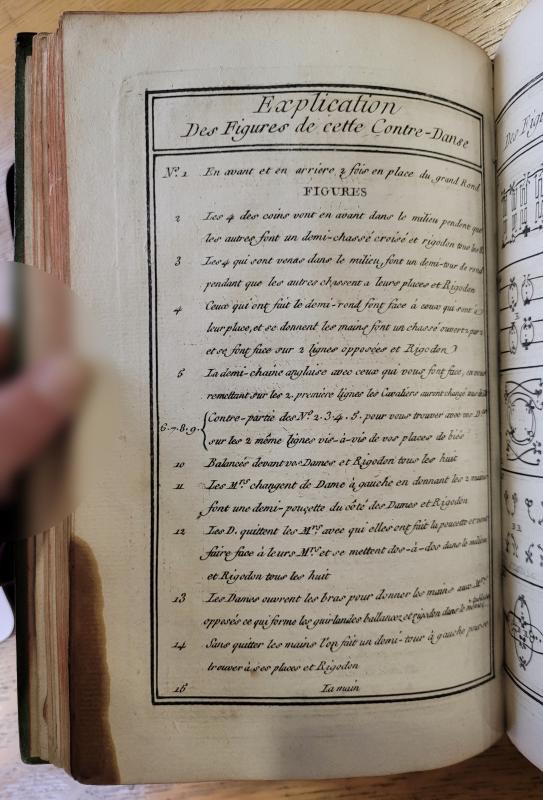 Explication
Des Figures de cette Contre-Danse
Nº. 1 En avant et en arrière 2 fois en place du grand Rond
FIGURES
2 Les 4 des coins vont en avant dans le milieu pendent que
les autres font un demi-chassé croisé et rigodon tous les
3 Les 4 qui sont venus dans le milieu, font un demi-tour de rond
pendant que les autres chassent a leurs places et Rigodon
4 Ceux qui ont fait le demi-rond font face à ceux qui sont à
leur place, et se donnent les mains font un chassé ouvert
et se font face sur 2 lignes opposées et Rigodon
5 La demi-chaine anglaise avec ceux qui vous font face, en vous
remettant sur les 2. première lignes les Cavaliers auront changé
6.7.8.9. Contre-partie des Nº. 2.3.4.5. pour vous trouver avec vos D.
sur les 2 même lignes vis-à-vis de vos places de biés
10 Balancés devant vos Dames et Rigodon tous les huit
11 Les Mrs changent de Dame à gauche en donnant les 2 mains
font une demi-poucette du côté des Dames et Rigodon
12 Les D. quittent les Mrs avec qui elles ont fait la poucette et vont
faire face à leurs Mrs et se mettent dos-à-dos dans le milieu
et Rigodon tous les huit
13 Les Dames ouvrent les bras pour donner les mains aux Mrs
opposés ce qui forme les guirlandes ballancez et rigodon dans le même
14 Sans quitter les mains l'on fait un demi-tour à gauche pour se
trouver à ses places et Rigodon
15 La main
Des Figu